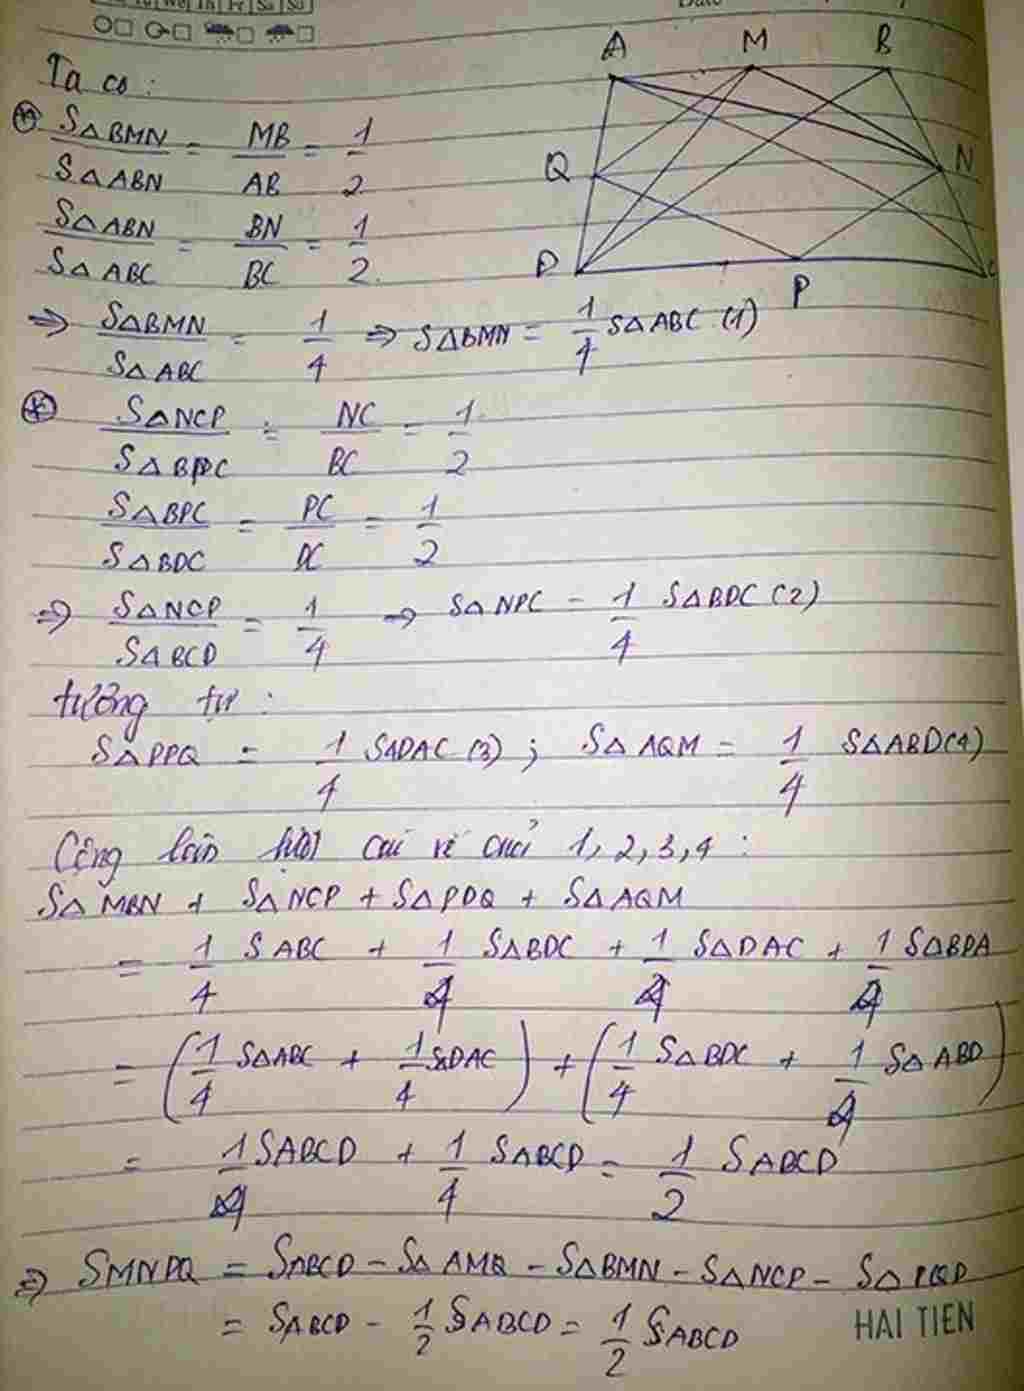 Tu We Th Fr Sa Su
Date
Ta có :
A M B
Q N
D P C
⊛ SΔBMN / SΔABN = MB / AB = 1/2
SΔABN / SΔABC = BN / BC = 1/2.
=> SΔBMN / SΔABC = 1/4 => SΔBMN = 1/4 SΔABC (1)
⊛ SΔNCP / SΔBPC = NC / BC = 1/2
SΔBPC / SΔBDC = PC / DC = 1/2
=> SΔNCP / SΔBCD = 1/4 => SΔNPC = 1/4 SΔBDC (2)
tương tự :
SΔPPQ = 1/4 SΔDAC (3) ; SΔAQM = 1/4 SΔABD (4)
Cộng lần lượt các vế của 1, 2, 3, 4 :
SΔMBN + SΔNCP + SΔPDQ + SΔAQM
= 1/4 SABC + 1/4 SΔBDC + 1/4 SΔDAC + 1/4 SΔBDA
= (1/4 SΔABC + 1/4 SΔDAC) + (1/4 SΔBDC + 1/4 SΔABD)
= 1/4 SABCD + 1/4 SABCD = 1/2 SABCD
=> SMNPQ = SABCD - SΔAMQ - SΔBMN - SΔNCP - SΔPQD
= SABCD - 1/2 SABCD = 1/2 SABCD
HAI TIEN